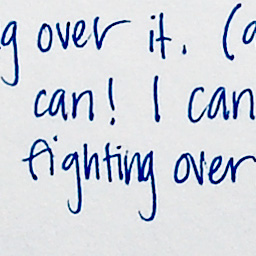 g over it. (a
can! I can
fighting over